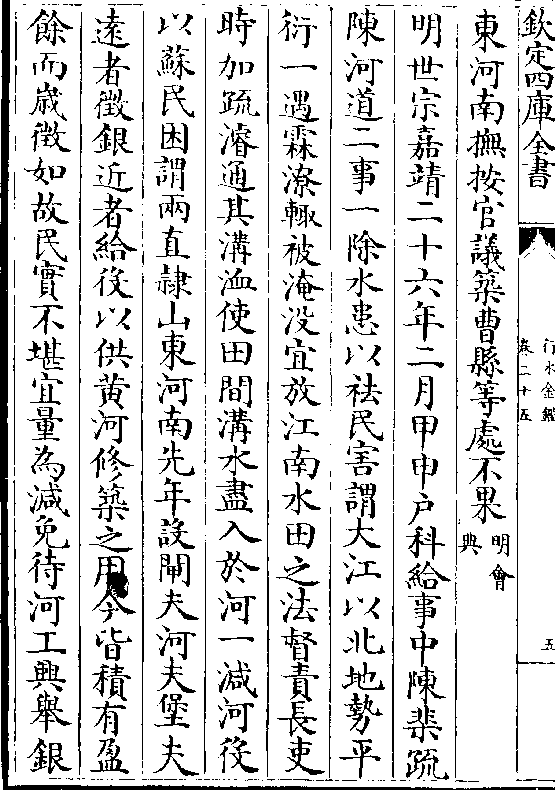 欽定四庫全書
行水金鑑
卷二十五
五
東河南撫按官議築曹縣等處不果明會典
明世宗嘉靖二十六年二月甲申户科給事中陳棐疏
陳河道二事一除水患以祛民害謂大江以北地勢平
衍一遇霖潦輙被淹没宜放江南水田之法督責長吏
時加疏濬通其溝洫使田間溝水盡入於河一減河役
以蘇民困謂兩直隷山東河南先年設閘夫河夫堡夫
逺者徵銀近者給役以供黄河修築之用今皆積有盈
餘而嵗徵如故民實不堪宜量為減免待河工興舉銀